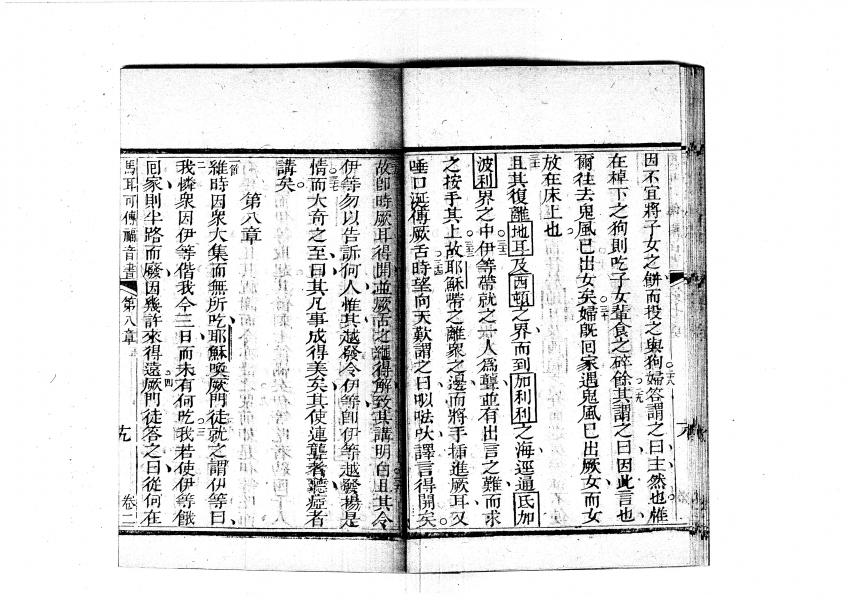 因不宜將子女之餅而投之與狗婦答謂之曰主然也惟
在棹下之狗則吃子女輩食之碎餘其謂之曰因此言也
爾往去鬼風已出女矣婦旣回家遇鬼風已出厥女而女
放在床上也
且其復離地耳及西頓之界而到加利利之海逕逼氐加
波利界之中伊等帶就之一人爲聾並有出言之難而求
之按手其上故耶穌帶之離衆之邊而將手插進厥耳又
唾口涎傅厥舌時望向天歎謂之曰㕥呔㕭譯言得開矣
故卽時厥耳得開並厥舌之繩得解致其講明白且其令
伊等勿以告訴何人惟其越發令伊等卽伊等越發揚是
情而大奇之至曰其凡事成得美矣其使連聾者聽瘂者
講矣
第八章
維時因衆大集而無所吃耶穌喚厥門徒就之謂伊等曰
我憐衆因伊等偕我今三日而未有何吃我若使伊等餓
回家則半路而廢因幾許來得遠厥門徒答之曰從何在
馬耳可傳福音書 第八章 十九 卷二